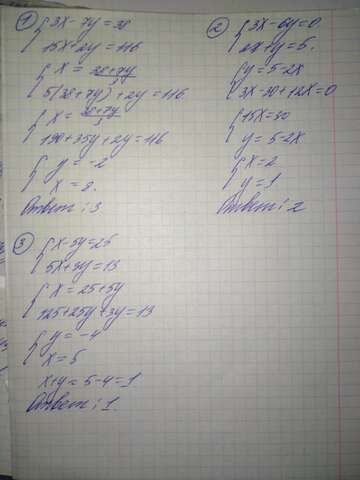 ① { 3x-7y=38
15x+2y=116
{ x = 38+7y/3
5(38+7y)+2y=116
{ x = 38+7y/3
190+35y+2y=116
{ y=-2
x=8.
Ответ: 3
② { 3x-6y=0
2x+y=5.
{ y=5-2x
3x-30+12x=0
{ 15x=30
y=5-2x
{ x=2
y=1
Ответ: 2
③ { x-5y=25
5x+3y=13
{ x=25+5y
125+25y+3y=13
{ y=-4
x=5
x+y=5-4=1
Ответ: 1.